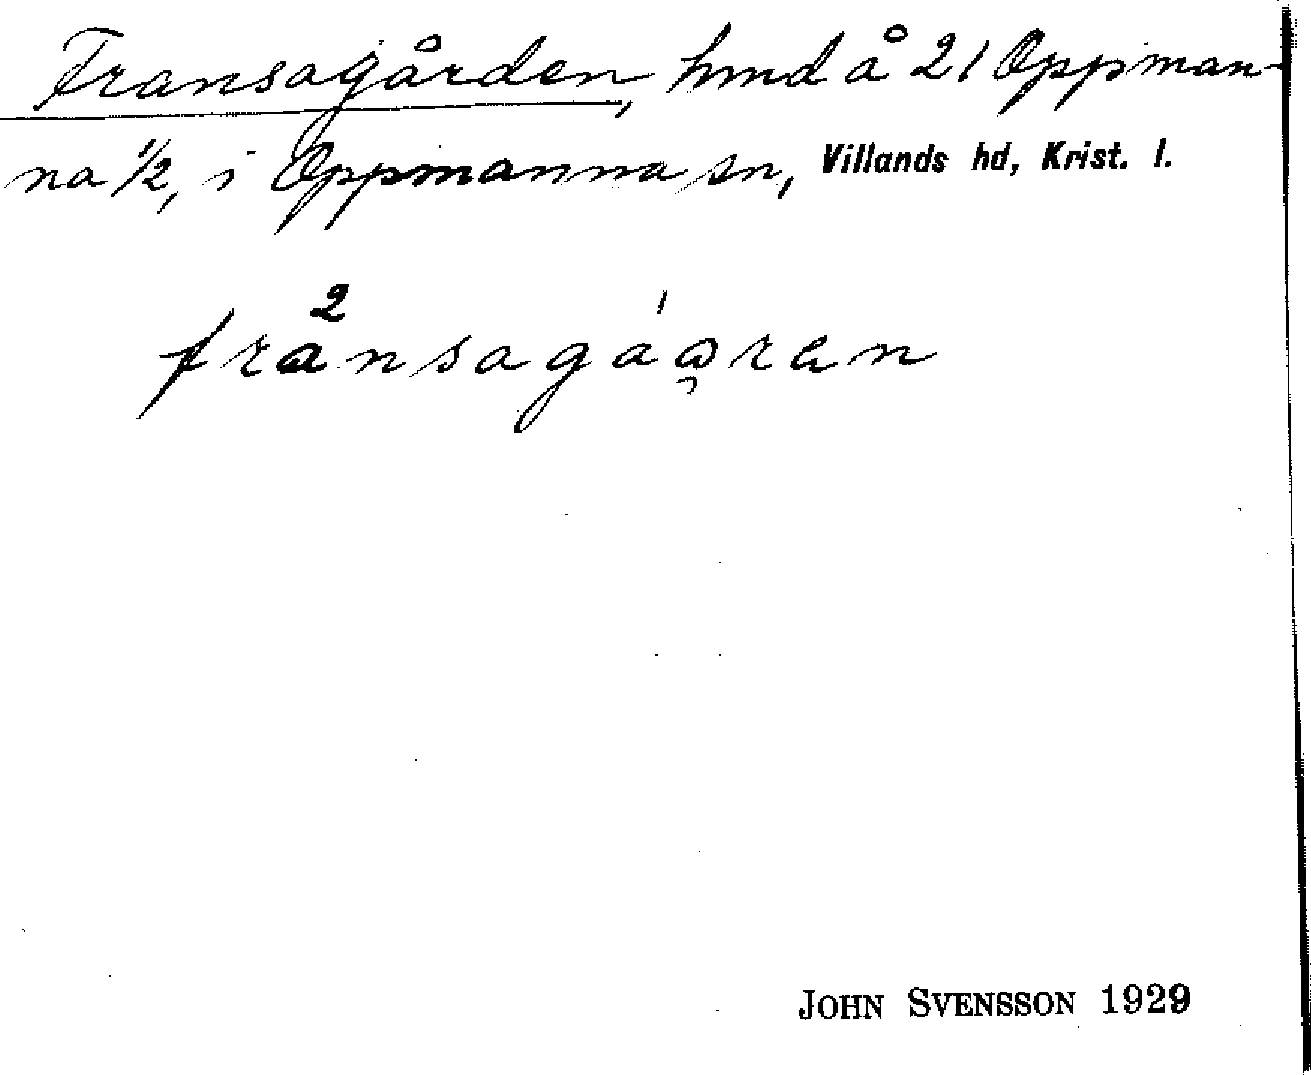 Fransagården, hmd å 21 Oppman-
na 1/2, i Oppmanna sn, Villands hd, Krist. l.
JOHN SVENSSON 1929